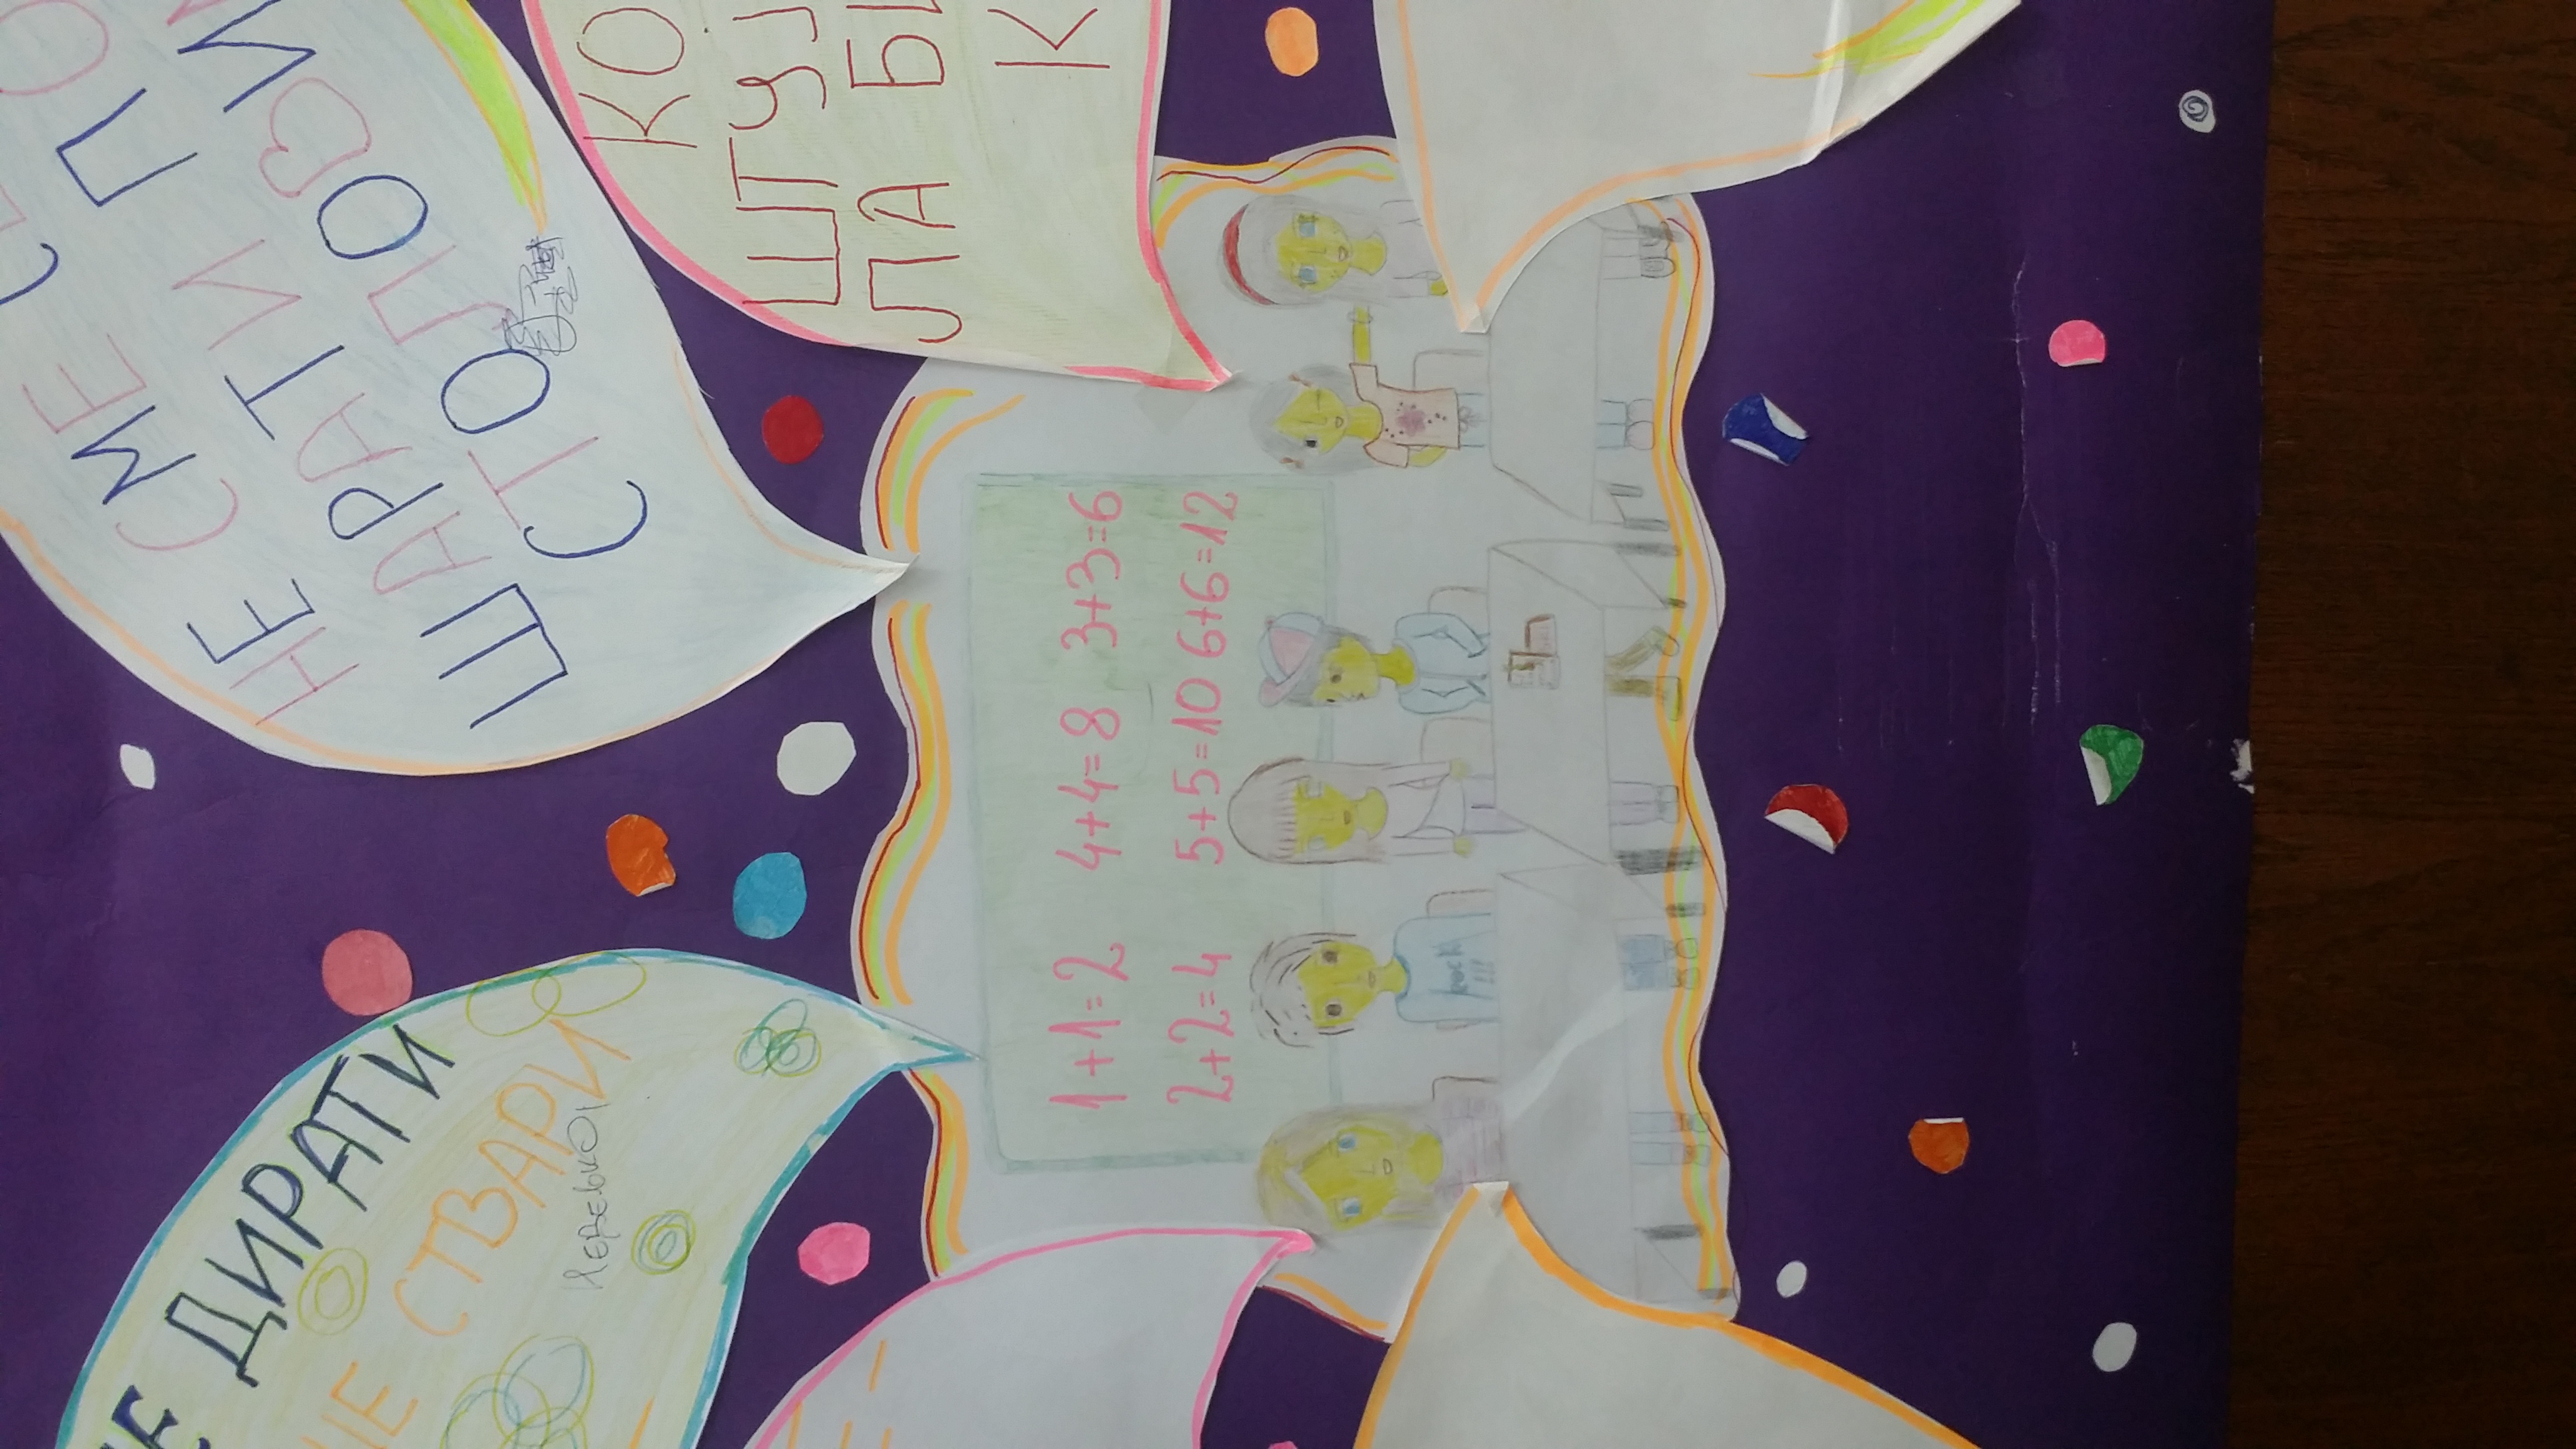 Е ДИРАТИ
ЊЕ СТВАРИ
НЕ СМЕ СЕ
ШАРАТИ ПО
СТОЛОВИМ
КО
ШТУЈ
ЛА БИ
К
1+1=2 4+4=8 3+3=6
2+2=4 5+5=10 6+6=12
rock
!!!